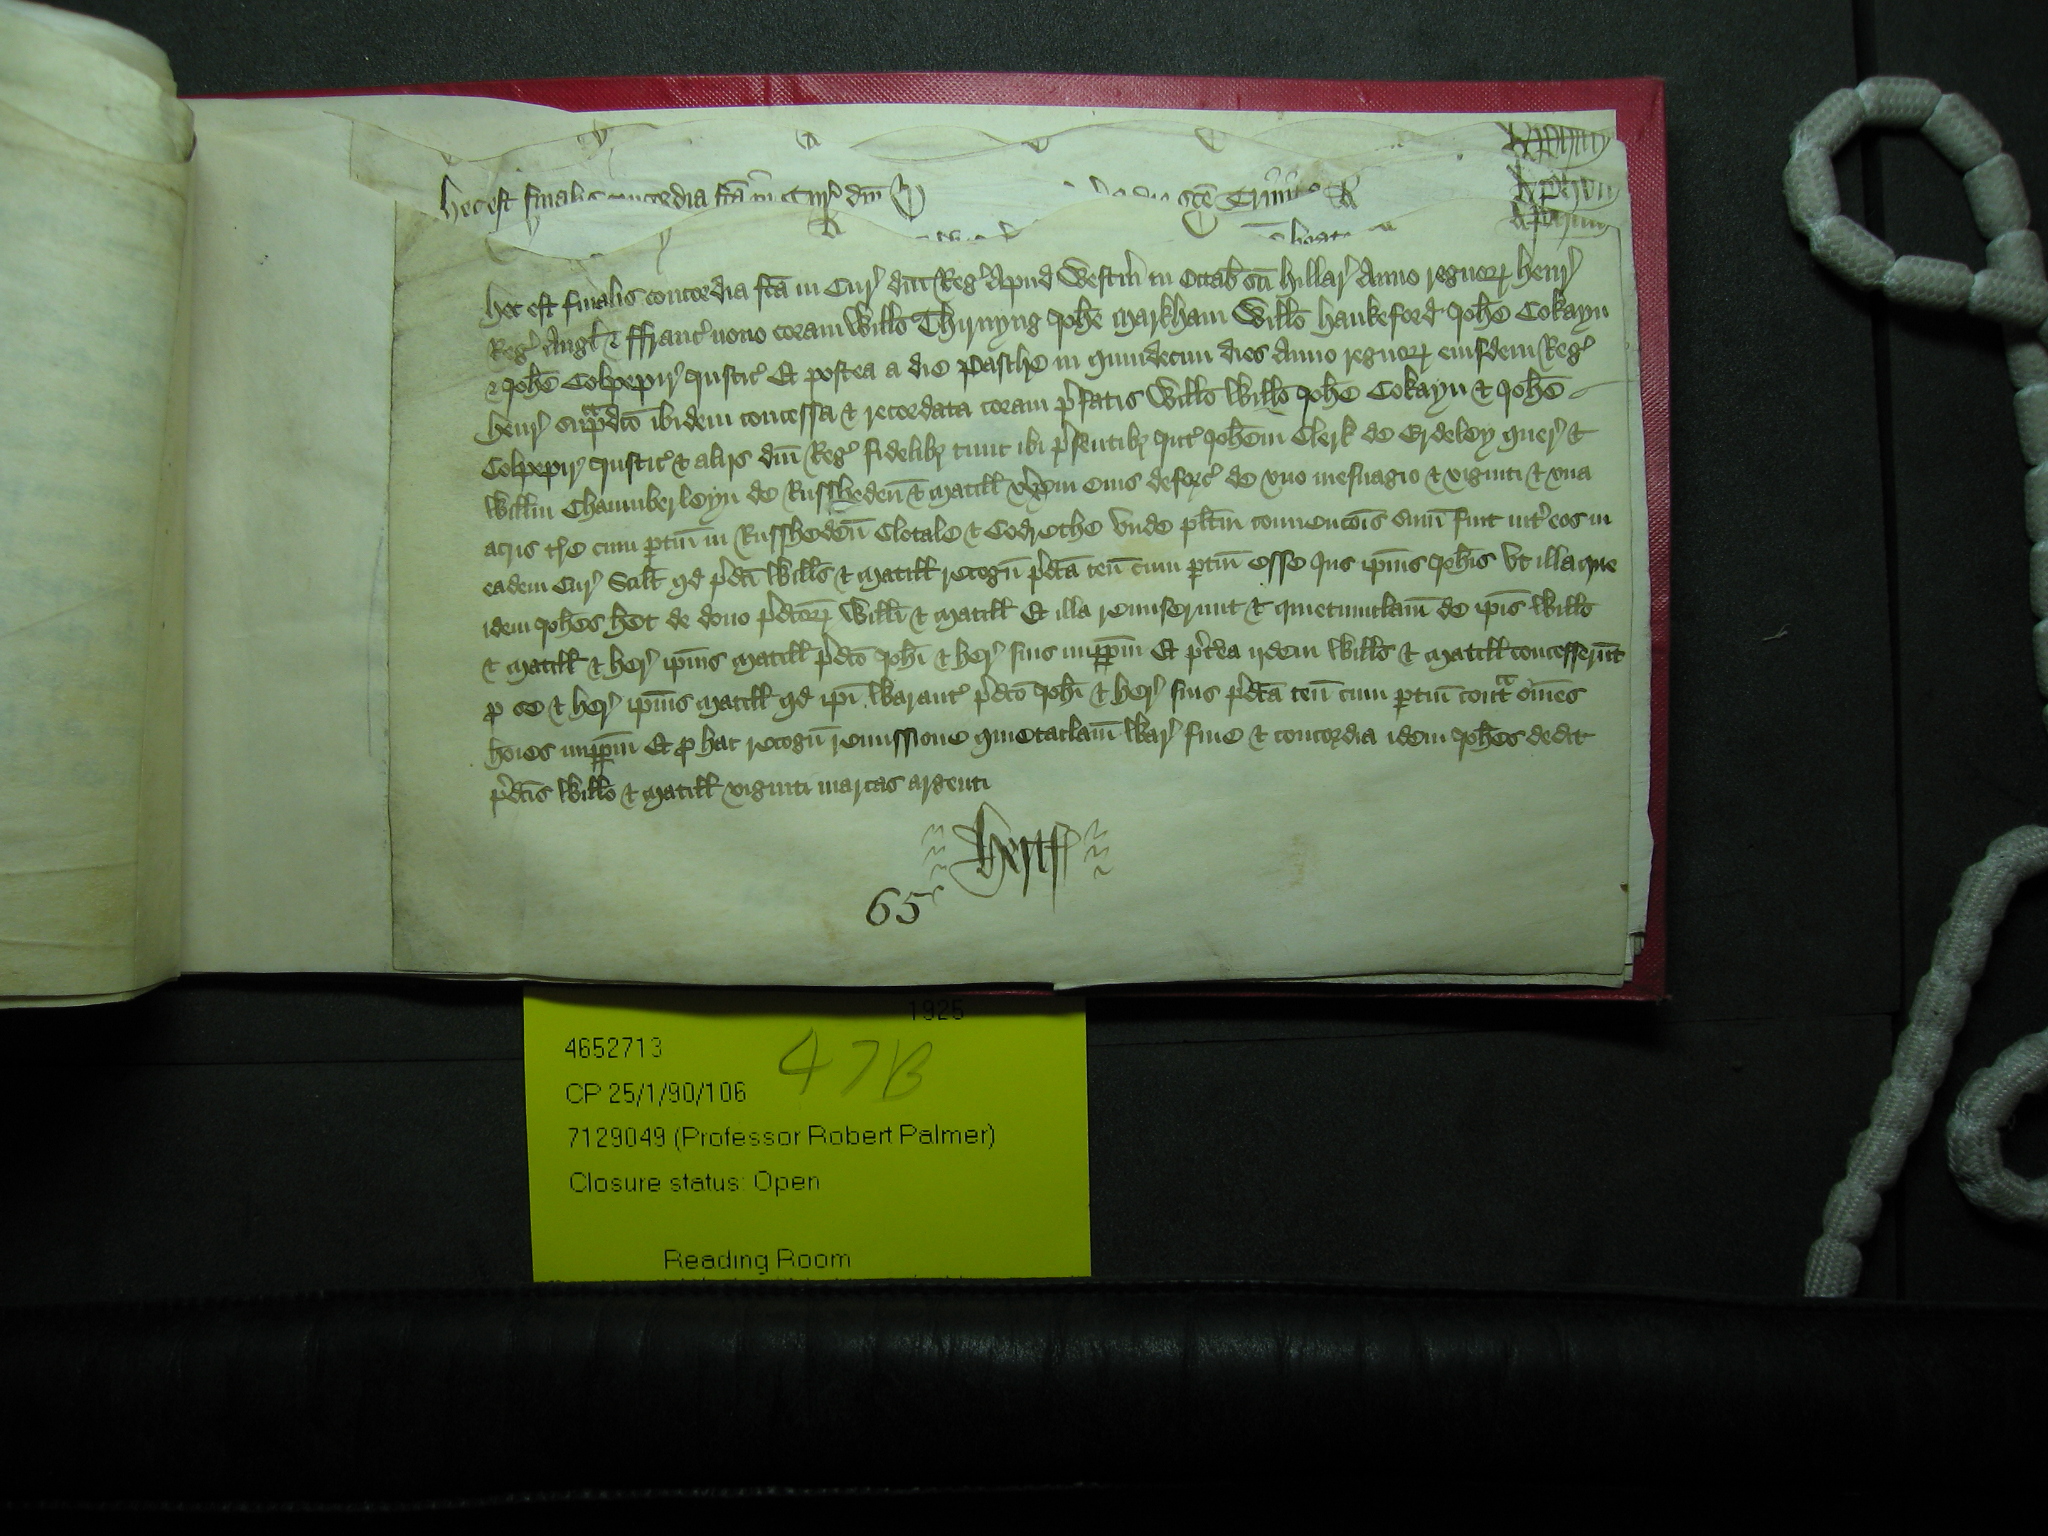 Hec est finalis concordia fcā in Cur' dn̄i
sc̄e Trinit'
Hec est finalis concordia fcā in Cur' dn̄i Reg' Apud Westm̄ in Octab' sc̄i Hillar' Anno regnorꝝ Henr'
Reg' Angl' ⁊ Franc' nono coram Willō Thirnyng Joh̄e Markham Willō Hankeford Joh̄e Cokayn
⁊ Joh̄e Colpepir' Justic' Et postea a die Pasche in quindecim dies Anno regnorꝝ eiusdem Reg'
Henr' sup̄dc̄o ibidem concessa ⁊ recordata coram p'fatis Willō Willō Joh̄e Cokayn ⁊ Joh̄e
Colpepir' Justic' ⁊ alijs dn̄i Reg' fidelibꝫ tunc ibi p'sentibꝫ Int' Joh̄em Clerk de Erdeley quer' ⁊
Willm̄ Chaumberleyn de Russheden̄ ⁊ Matill' vx̄em eius deforc' de vno mesuagio ⁊ viginti ⁊ vna
acris t're cum ptin̄ in Russheden̄ Clotale ⁊ Codrethe vnde plītm conuencōis sum̄ fuit int' eos in
eadem Cur' Scilt' qd p'dc̄i Wills̄ ⁊ Matill' recogn̄ p'dc̄a ten̄ cum ptin̄ esse Jus ip̄ius Joh̄is vt illa que
idem Joh̄es hēt de dono p'dc̄orꝝ Willī ⁊ Matill' Et illa remiserunt ⁊ quietumclam̄ de ip̄is Willō
⁊ Matill' ⁊ her' ip̄ius Matill' p'dc̄o Joh̄i ⁊ her' suis imppm̄ Et p't'ea ijdem Wills̄ ⁊ Matill' concesserūt
p se ⁊ her' ip̄ius Matill' qd ip̄i Warant' p'dc̄o Joh̄i ⁊ her' suis p'dc̄a ten̄ cum ptin̄ contᵃ om̄es
hoīes imppm̄ Et p hac recogn̄ remissione quietaclam̄ War' fine ⁊ concordia idem Joh̄es dedit
p'dc̄is Willō ⁊ Matill' viginti marcas argenti
Hertf'
65
1925
4652713
47B
CP 25/1/90/106
7129049 (Professor Robert Palmer)
Closure status: Open
Reading Room